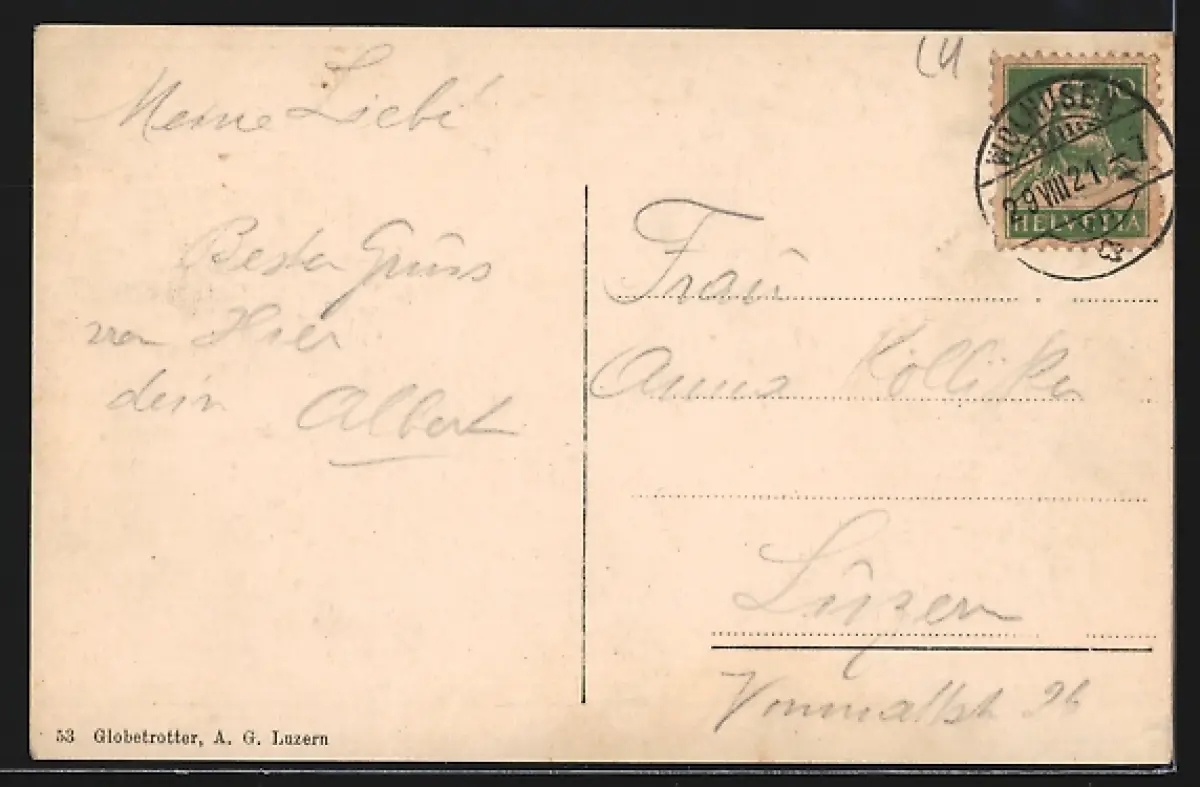 Meine Liebi
Beste Grüss
von Hier
dein Albert
53 Globetrotter, A. G. Luzern
LU
10
WOLHUSEN
29 VIII 21
HELVETIA
Frau
Anna Kölliker
Luzern
26